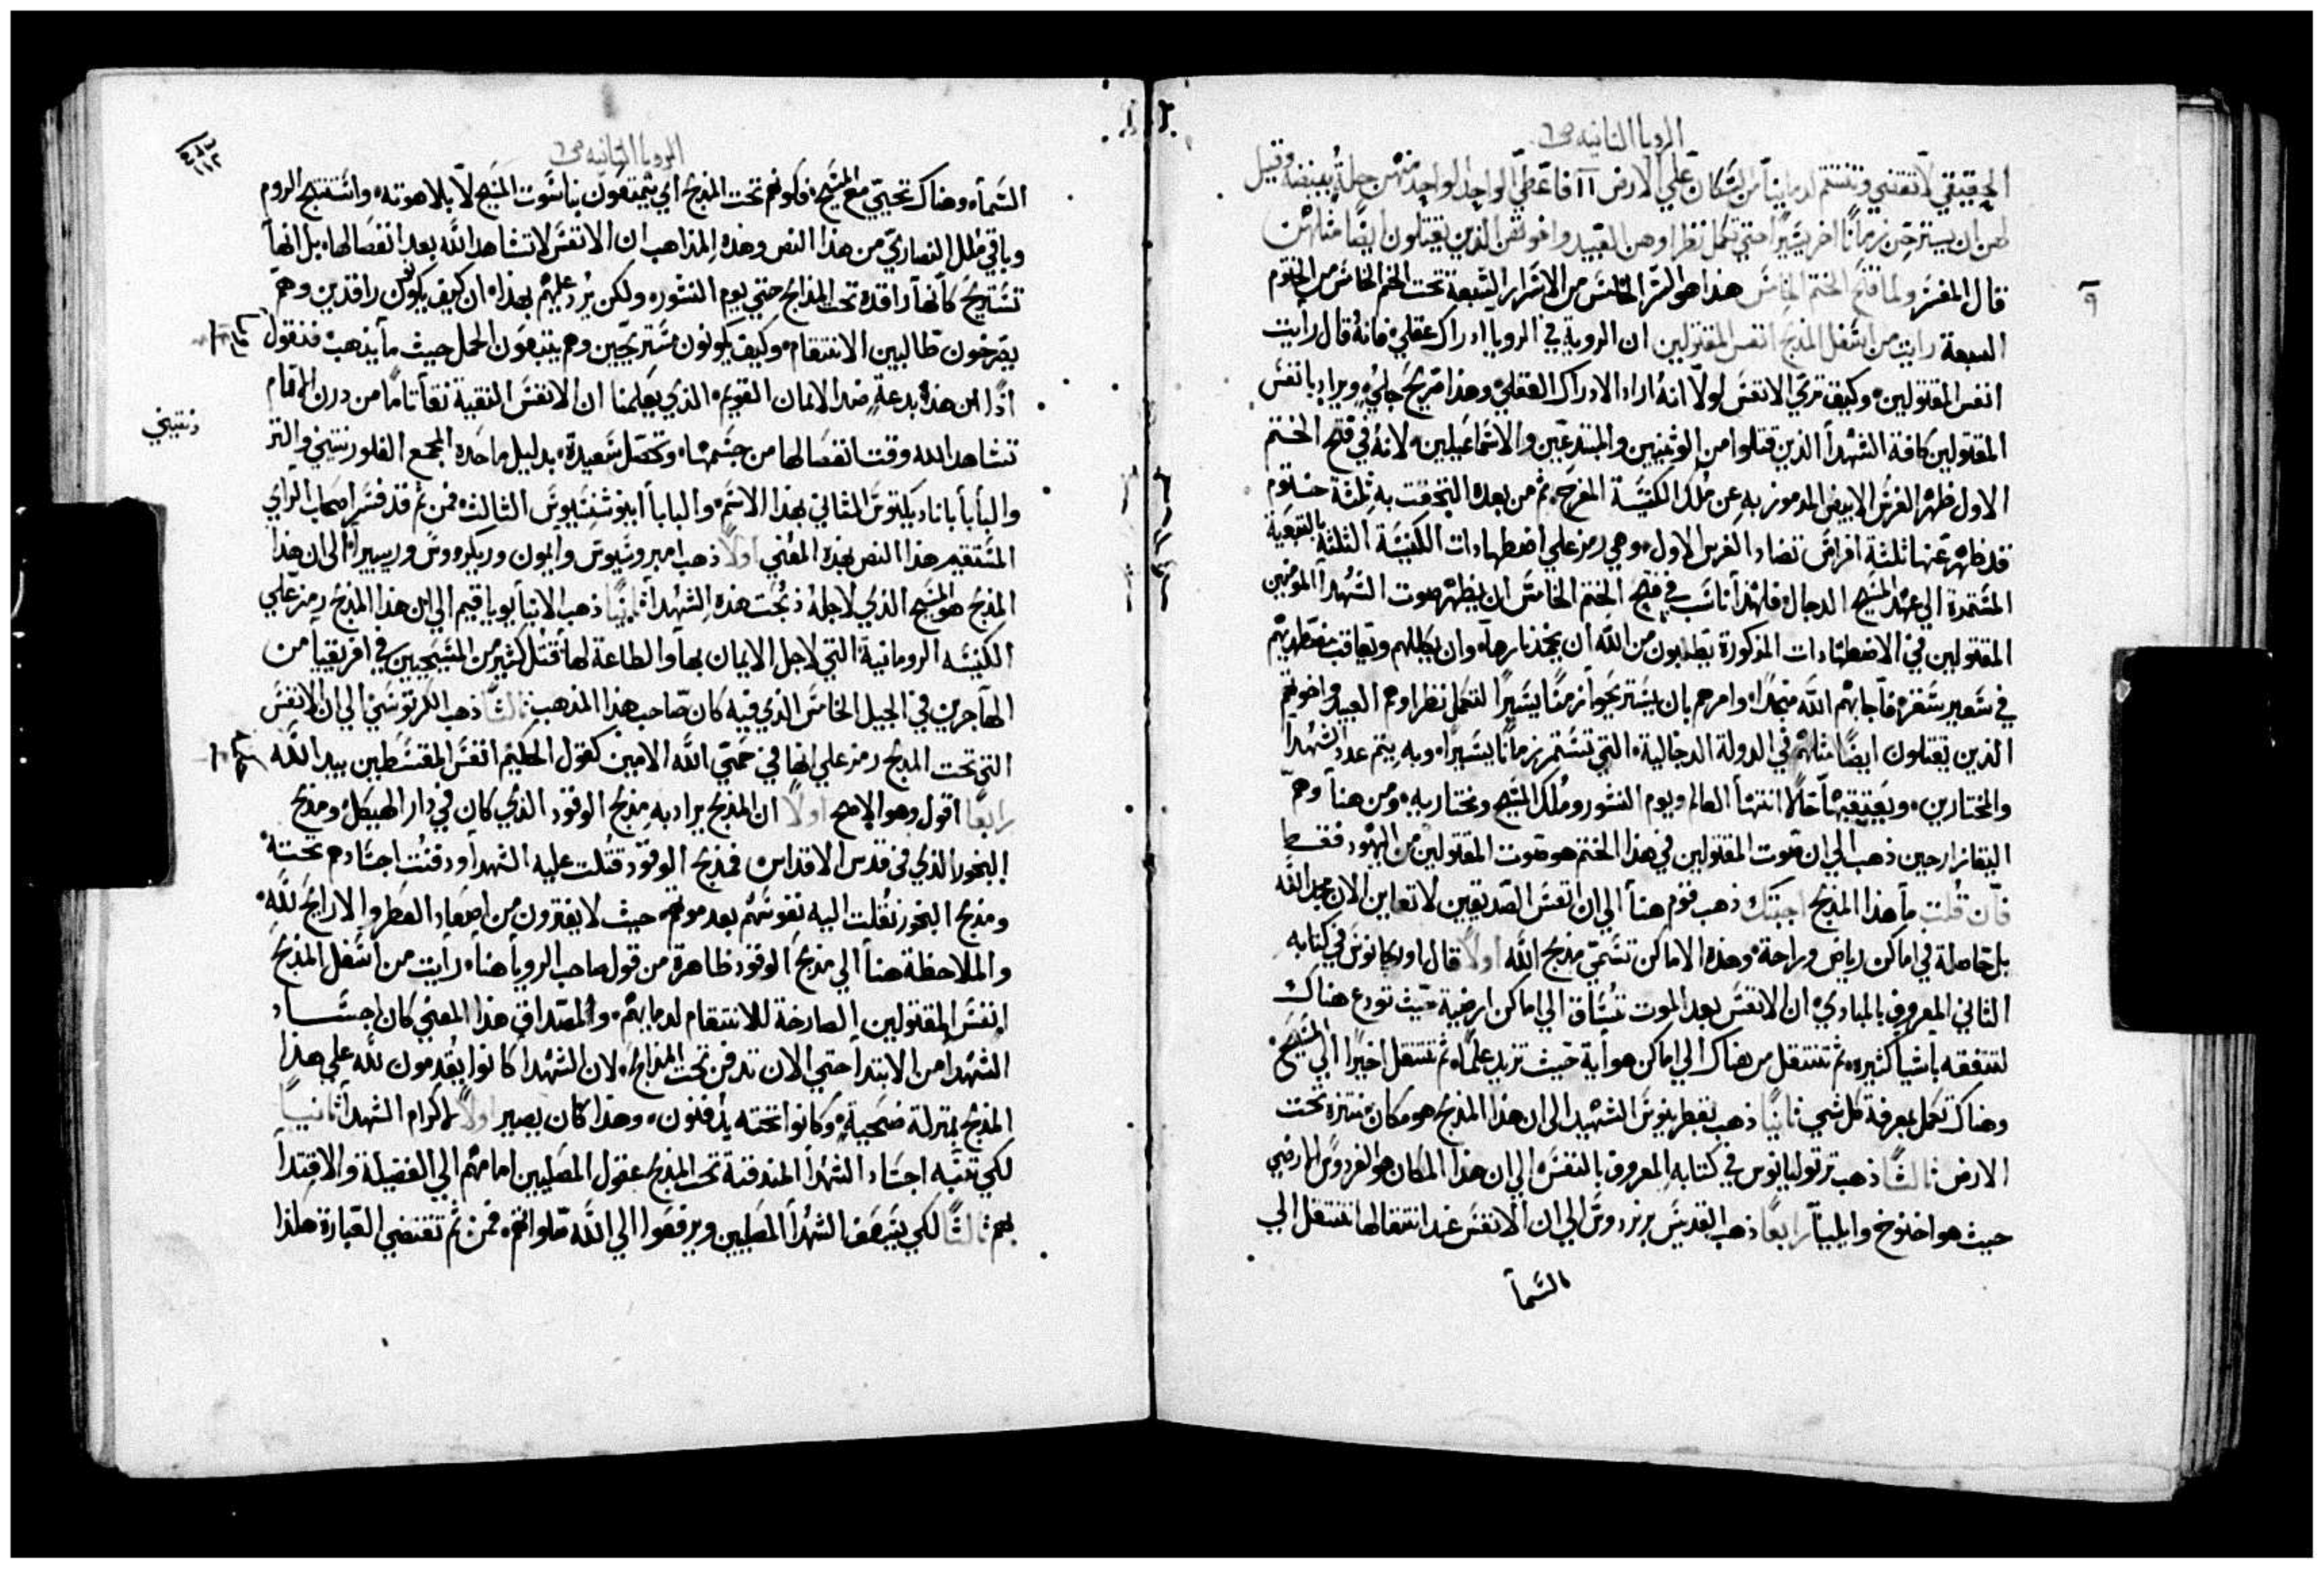 الرويا الثانيه ص ٦
الحقيقي لا تقضي وتنتقم لدماينا من السكان علي الارض ١١ فاعطي الواحد لواحد منهن حلة بيضه وقيل
لهن ان يسترحن زمانًا اخر يسيرًا حتي تكمل نظراوهن العبيد واخوتهن الذين يقتلون ايضًا مثلهن
٩
قال المفسر ولما فتح الختم الخامس هذا هو السر الخامس من الاسرار السبعة تحت الختم الخامس من الختوم
السبعة رايت من اسفل المذبح انفس المقتولين ان الروية في الرويا ادراك عقلي فانهُ قال رايت
انفس المقتولين وكيف تري الانفس لولا انهُ اراد الادراك العقلي وهذا صريح جلي ويراد بانفس
المقتولين كافة الشهدا الذين قتلوا من الوثنيين والمبتدعين والاسماعيليين لانهُ في فتح الختم
الاول ظهر الفرس الابيض المرموز به عن ملك الكنيسة المفرح ثم من بعده التحقت به ثلثة ختوم
قد ظهر عنها ثلثة افراس تضاد الفرس الاول وهي رمز علي اضطهادات الكنيسة الثلثة الصعبة
المستمدة الي عهد المسيح الدجال فلهذا ناسب في فتح الختم الخامس ان يظهر صوت الشهدا المومنين
المقتولين في الاضطهادات المذكورة يطلبون من الله ان ياخذ ثارها وان يكللهم ويعاقب مضطهديهم
في سعير سقره فاجابهم الله متمجدًا وامرهم بان يستريحوا زمنًا يسيرًا لتكمل نظراوهم العبيد واخوتهم
الذين يقتلون ايضًا مثلهم في الدولة الدجالية التي تستمر زمانًا يسيرًا وبه يتم عدد الشهدا
والمختارين ويعقبها حالًا انتها العالم ويوم النشور وملك المسيح ومختاريه ومن هنا وهم
اليقازارحين ذهب الي ان صوت المقتولين في هذا الختم هو صوت المقتولين من اليهود فقط
فان قلت ما هذا المذبح اجبتك ذهب قوم هنا الي ان انفس الصديقين لا تعاين الان مجد الله
بل حاصلة في اماكن رياض وراحة وهذه الاماكن تسمي مذبح الله اولًا قال اوريجانوس في كتابه
الثاني المعروف بالمبادي ان الانفس بعد الموت تنساق الي اماكن ارضية حيث تودع هناك
لتتفقه باشيا كثيره ثم تنتقل من هناك الي اماكن هوأية حيث تزيد علمًا ثم تنتقل اخيرًا الي المسيح
وهناك تكمل بمعرفة كل شي ثانيًا ذهب بقطرينوس الشهيد الي ان هذا المذبح هو مكان منتزه تحت
الارض ثالثًا ذهب ترتوليانوس في كتابه المعروف بالنفس الي ان هذا المكان هو الفردوس الارضي
حيث هو اخنوخ وايليا رابعًا ذهب القديس برنردوس الي ان الانفس عند انتقالها تنتقل الي
السمأ
الرويا الثانيه ص ٦
١١٢
السمأ وهناك تحيي مع المسيح فكونهم تحت المذبح اي يتمتعون بناسوت المسيح لا بلاهوته واستنتج الروم
وباقي ملل النصاري من هذا النص وهذه المذاهب ان الانفس لا تشاهد الله بعد انفصالها بل انها
تستريح كانها راقدة تحت المذابح حتي يوم النشور ولكن يُرد عليهم بهذا ان كيف يكون راقدين وهم
يصرخون طالبين الانتقام وكيف يكونون مستريحين وهم يتبعون الحمل حيث ما يذهب فنقول
اذًا ان هذه بدعة ضد الايمان القويم الذي يعلمنا ان الانفس النقية نقأ تامًا من درن الاثام
تشاهد الله وقت انفصالها من جسمها وتحصل سعيدة بدليل ما حده المجمع الفلورنتيني والتر
دنتيني
والبأبا باناديكتوس الثاني بهذا الاسم والبابا اينوشنسيوس الثالث فمن ثم قد فسر اصحاب الراي
المستقيم هذا النص بهذه المعني اولًا ذهب امبروسيوس وايمون وريكردوس وريبيرا الي ان هذا
المذبح هو المسيح الذي لاجلهُ ذبحت هذه الشهدأ ثانيًا ذهب الانبا يوياقيم الي ان هذا المذبح رمز علي
الكنيسه الرومانية التي لاجل الايمان بها والطاعة لها قتل كثير من المسيحيين في افريقيا من
الهاجرين في الجيل الخامس الذي فيه كان صاحب هذا المذهب ثالثًا ذهب الكرتوسي الي ان الانفس
التي تحت المذبح رمز علي انها في حمي الله الامين كقول الحكيم انفس المقسطين بيد الله
رابعًا اقول وهو الاصح اولًا ان المذبح يراد به مذبح الوقود الذي كان في دار الهيكل ومذبح
البخور الذي في قدس الاقداس فمذبح الوقود قتلت عليه الشهدا ودفنت اجسادهم تحته
ومذبح البخور نقلت اليه نفوسهم بعد موتهم حيث لا يفترون من اصعاد العطر والارايح لله
والملاحظة هنا الي مذبح الوقود ظاهرة من قول صاحب الرويا هنا رأيت من اسفل المذبح
انفس المقتولين الصارخة للانتقام لدمايهم والمصداق هذا المعني كان اجساد
الشهدا من الابتدا حتي الان تدفن تحت المذابح لان الشهدا كانوا يُقدمون لله علي هذا
المذبح بمنزلة ضحية وكانوا تحته يدفنون وهذا كان يصير اولًا لاكرام الشهدأ ثانيًا
لكي تنبه اجساد الشهدا المندفنة تحت المذبح عقول المصليين امامهم الي الفضيلة والاقتدا
بهم ثالثًا لكي يسعف الشهدأ المصليين ويرفعوا الي الله صلواتهم فمن ثم تقتضي العبارة هكذا